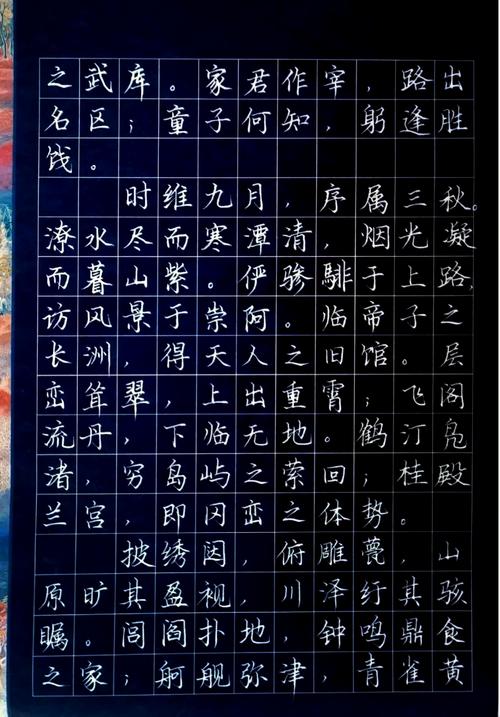 之武库。家君作宰，路出
名区；童子何知，躬逢胜
饯。
时维九月，序属三秋。
潦水尽而寒潭清，烟光凝
而暮山紫。俨骖騑于上路，
访风景于崇阿。临帝子之
长洲，得天人之旧馆。层
峦耸翠，上出重霄；飞阁
流丹，下临无地。鹤汀凫
渚，穷岛屿之萦回；桂殿
兰宫，即冈峦之体势。
披绣闼，俯雕甍，山
原旷其盈视，川泽纡其骇
瞩。闾阎扑地，钟鸣鼎食
之家；舸舰弥津，青雀黄